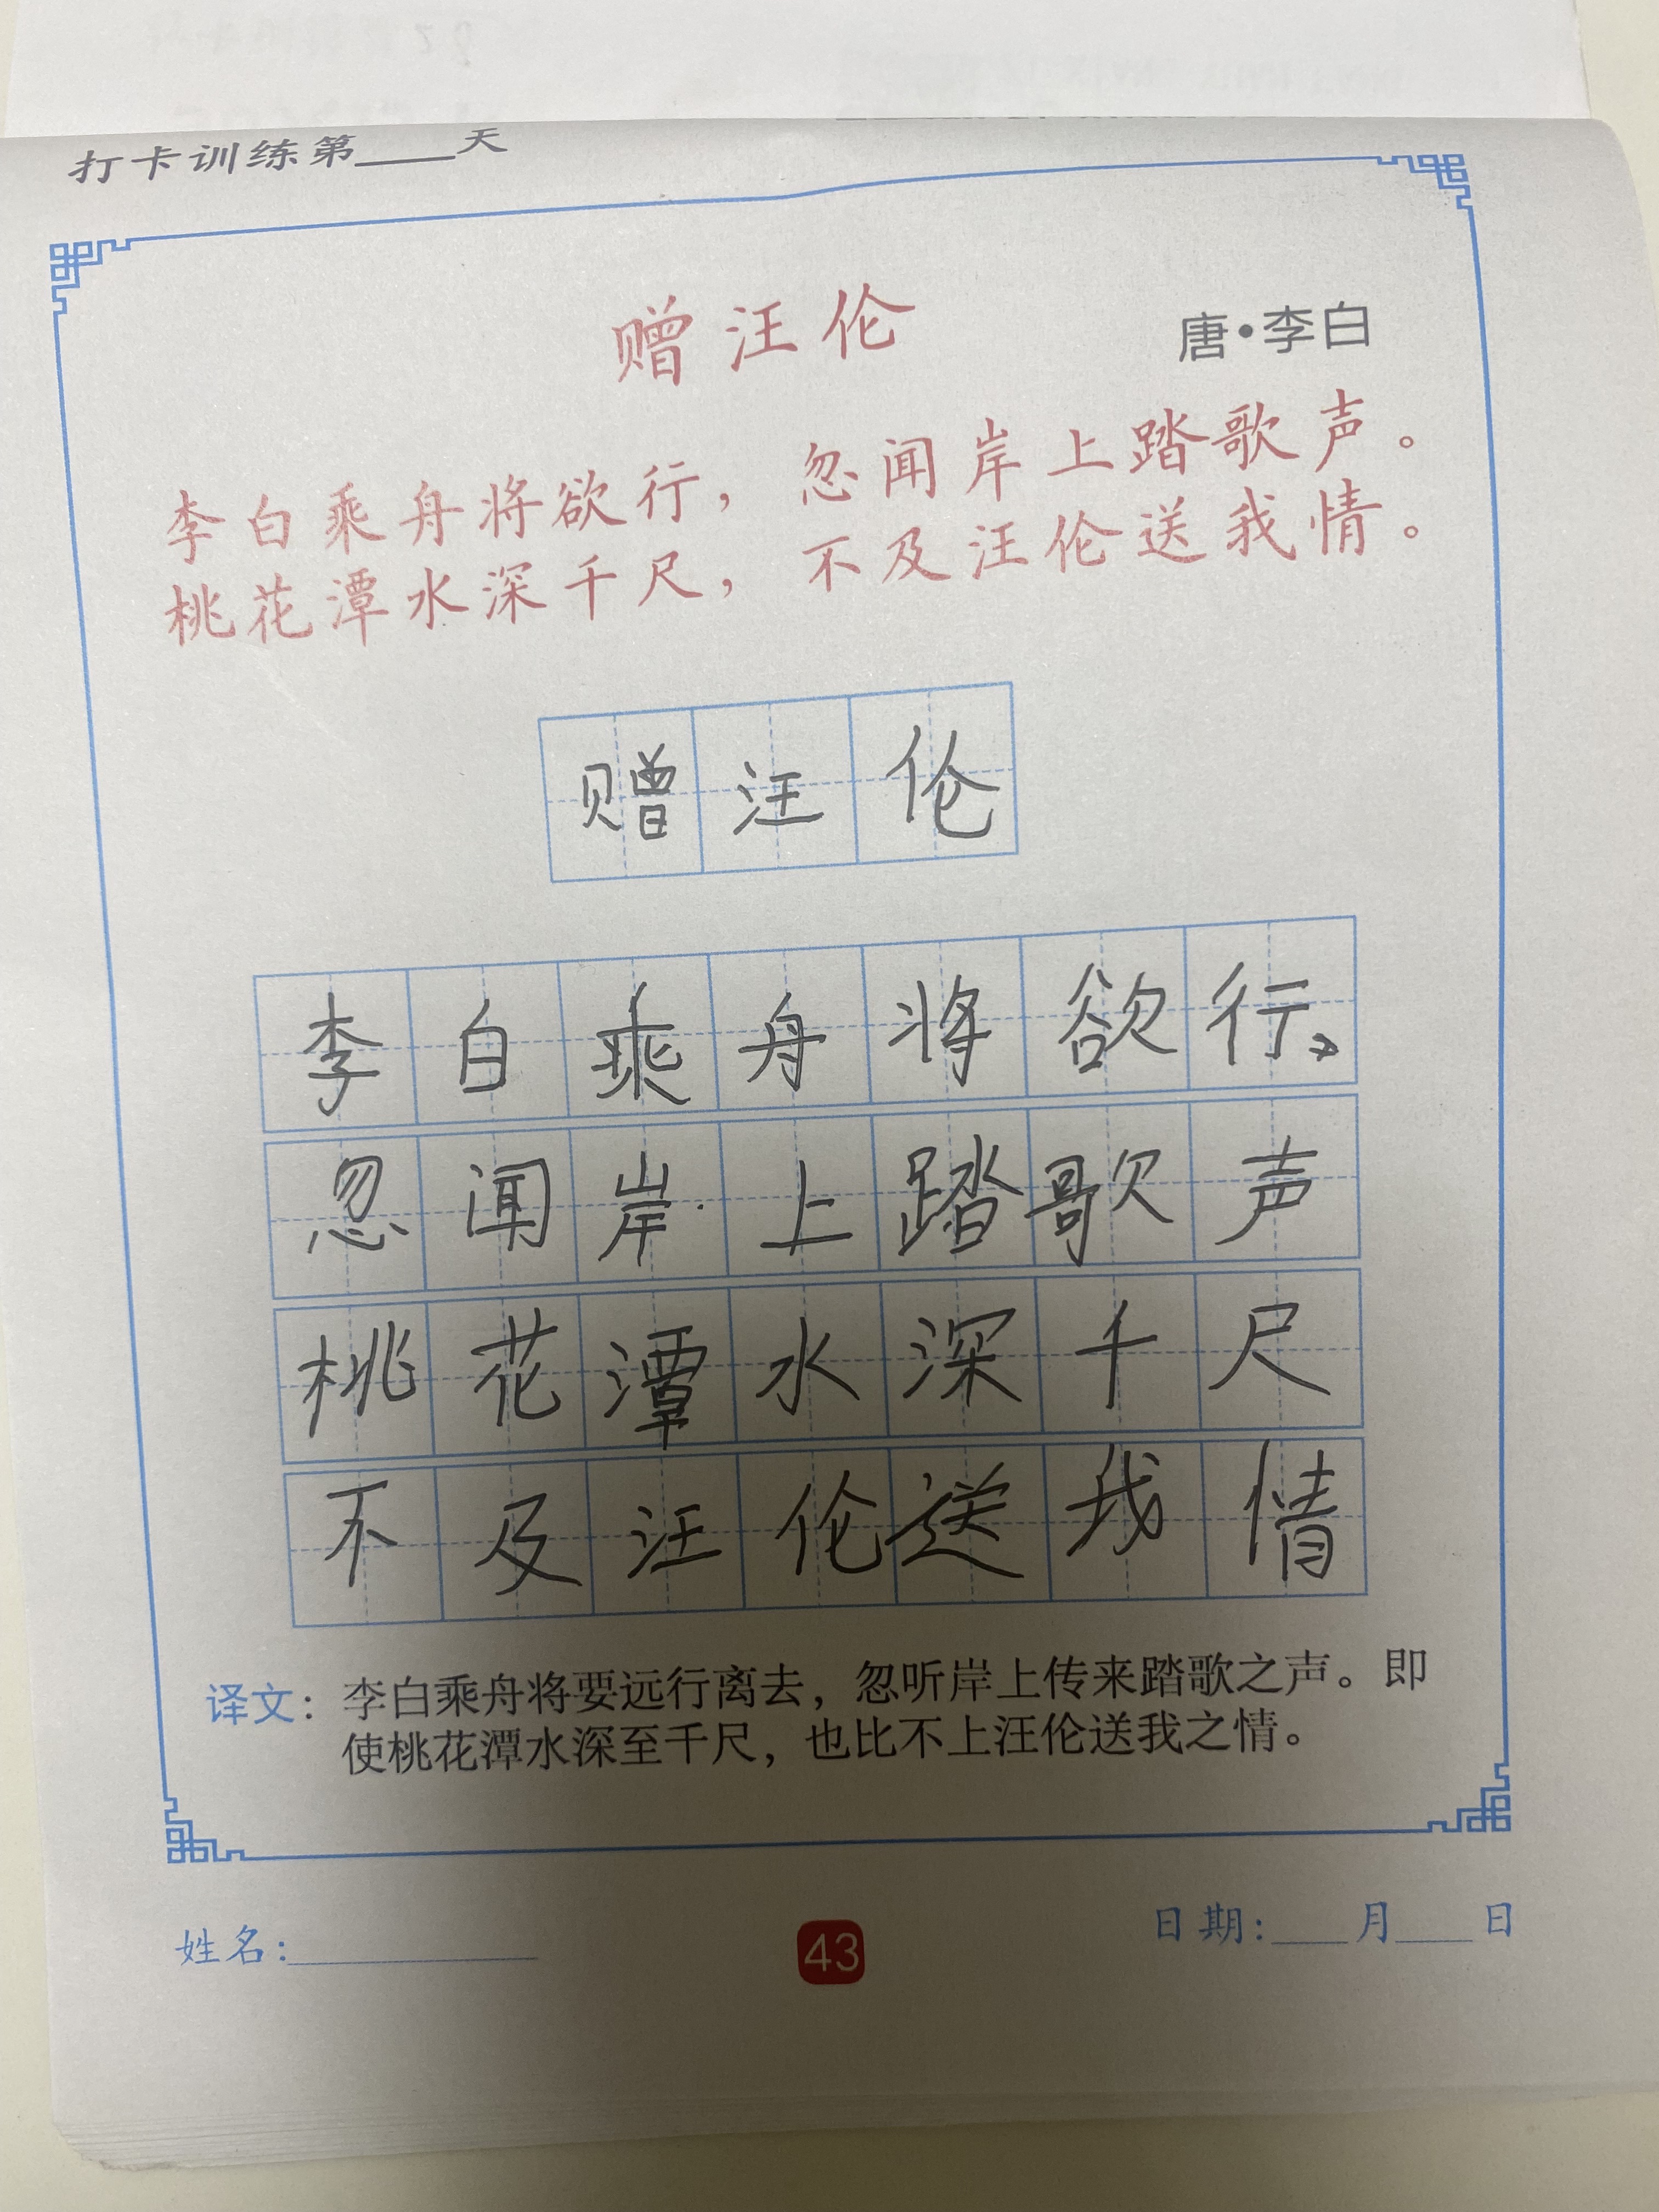 打卡训练第____天
赠汪伦
唐·李白
李白乘舟将欲行，忽闻岸上踏歌声。
桃花潭水深千尺，不及汪伦送我情。
赠汪伦
李白乘舟将欲行
忽闻岸上踏歌声
桃花潭水深千尺
不及汪伦送我情
译文：李白乘舟将要远行离去，忽听岸上传来踏歌之声。即
使桃花潭水深至千尺，也比不上汪伦送我之情。
姓名：________ 43 日期：___月___日